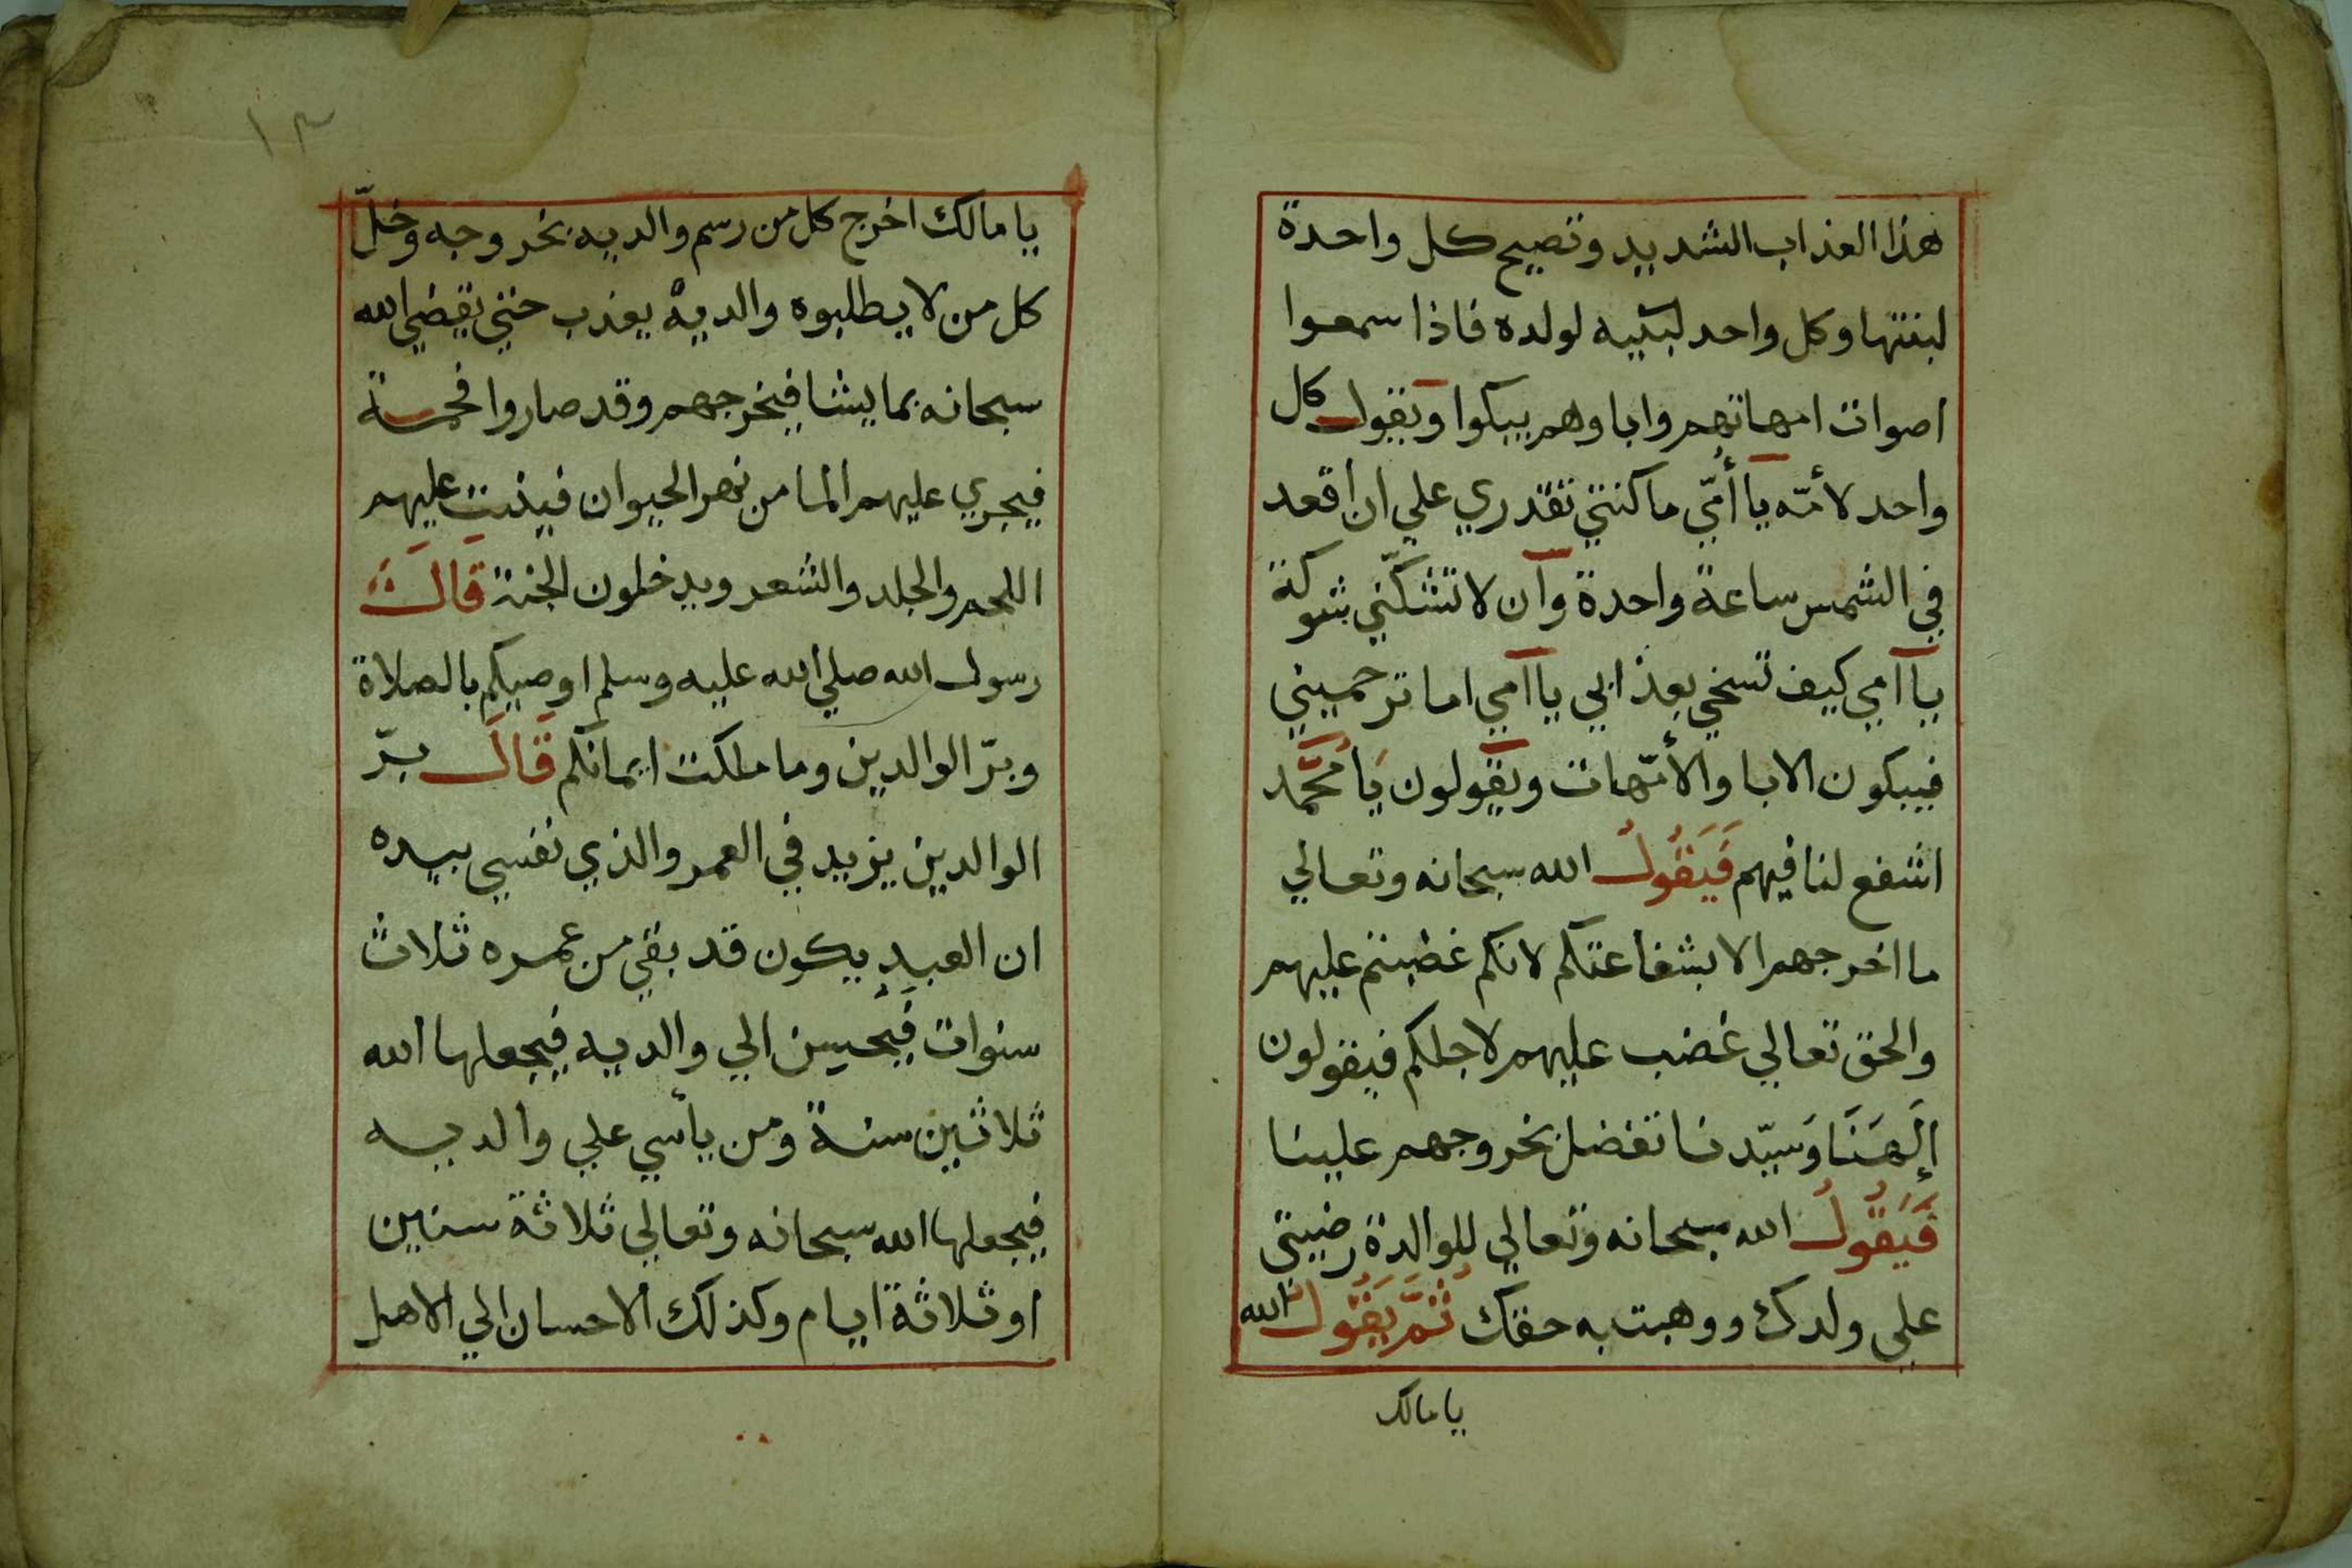 هذا العذاب الشديد وتصيح كل واحدة
لبنتها وكل واحد لبنيه لولده فاذا سمعوا
اصوات امهاتهم واباوهم يبكوا ويقول كل
واحد لأمّه يا أمّي ما كنتي تقدري علي ان اقعد
في الشمس ساعة واحدة وآن لا تشكّني شوكة
يا آمي كيف تسخي بعذابي يا آمي اما ترحميني
فيبكون الابا والأمّهات ويقولون يَا مُحَمَّد
اشفع لنا فيهم فَيَقُولُ الله سبحانه وتعالي
ما اخرجهم الا بشفاعتكم لانكم غضبتم عليهم
والحق تعالي غضب عليهم لاجلكم فيقولون
إلَهَنَا وَسَيّدنا تفضل بخروجهم علينا
فَيَقُولُ الله سبحانه وتعالي للوالدة رضيتي
علي ولدك ووهبت به حقك ثُمَّ يَقُولُ الله
يا مالك
١٣
يا مالك اخرج كل من رسم والديه بخروجه وخلّ
كل من لا يطلبوه والديه يعذب حتي يقضي الله
سبحانه بما يشا فيخرجهم وقد صاروا فحمة
فيجري عليهم الما من نهر الحيوان فينبت عليهم
اللحم والجلد والشعر ويدخلون الجنة قَالَ
رسول الله صلي الله عليه وسلم اوصيكم بالصلاة
وبرّ الوالدين وما ملكت ايمانكم قَالَ برّ
الوالدين يزيد في العمر والذي نفسي بيده
ان العبد يكون قد بقي من عمره ثلاث
سنوات فَيُحسن الي والديه فيجعلها الله
ثلاثين سنة ومن يأسي علي والديه
فيجعلها الله سبحانه وتعالي ثلاثة سنين
او ثلاثة ايام وكذلك الاحسان الي الاهل